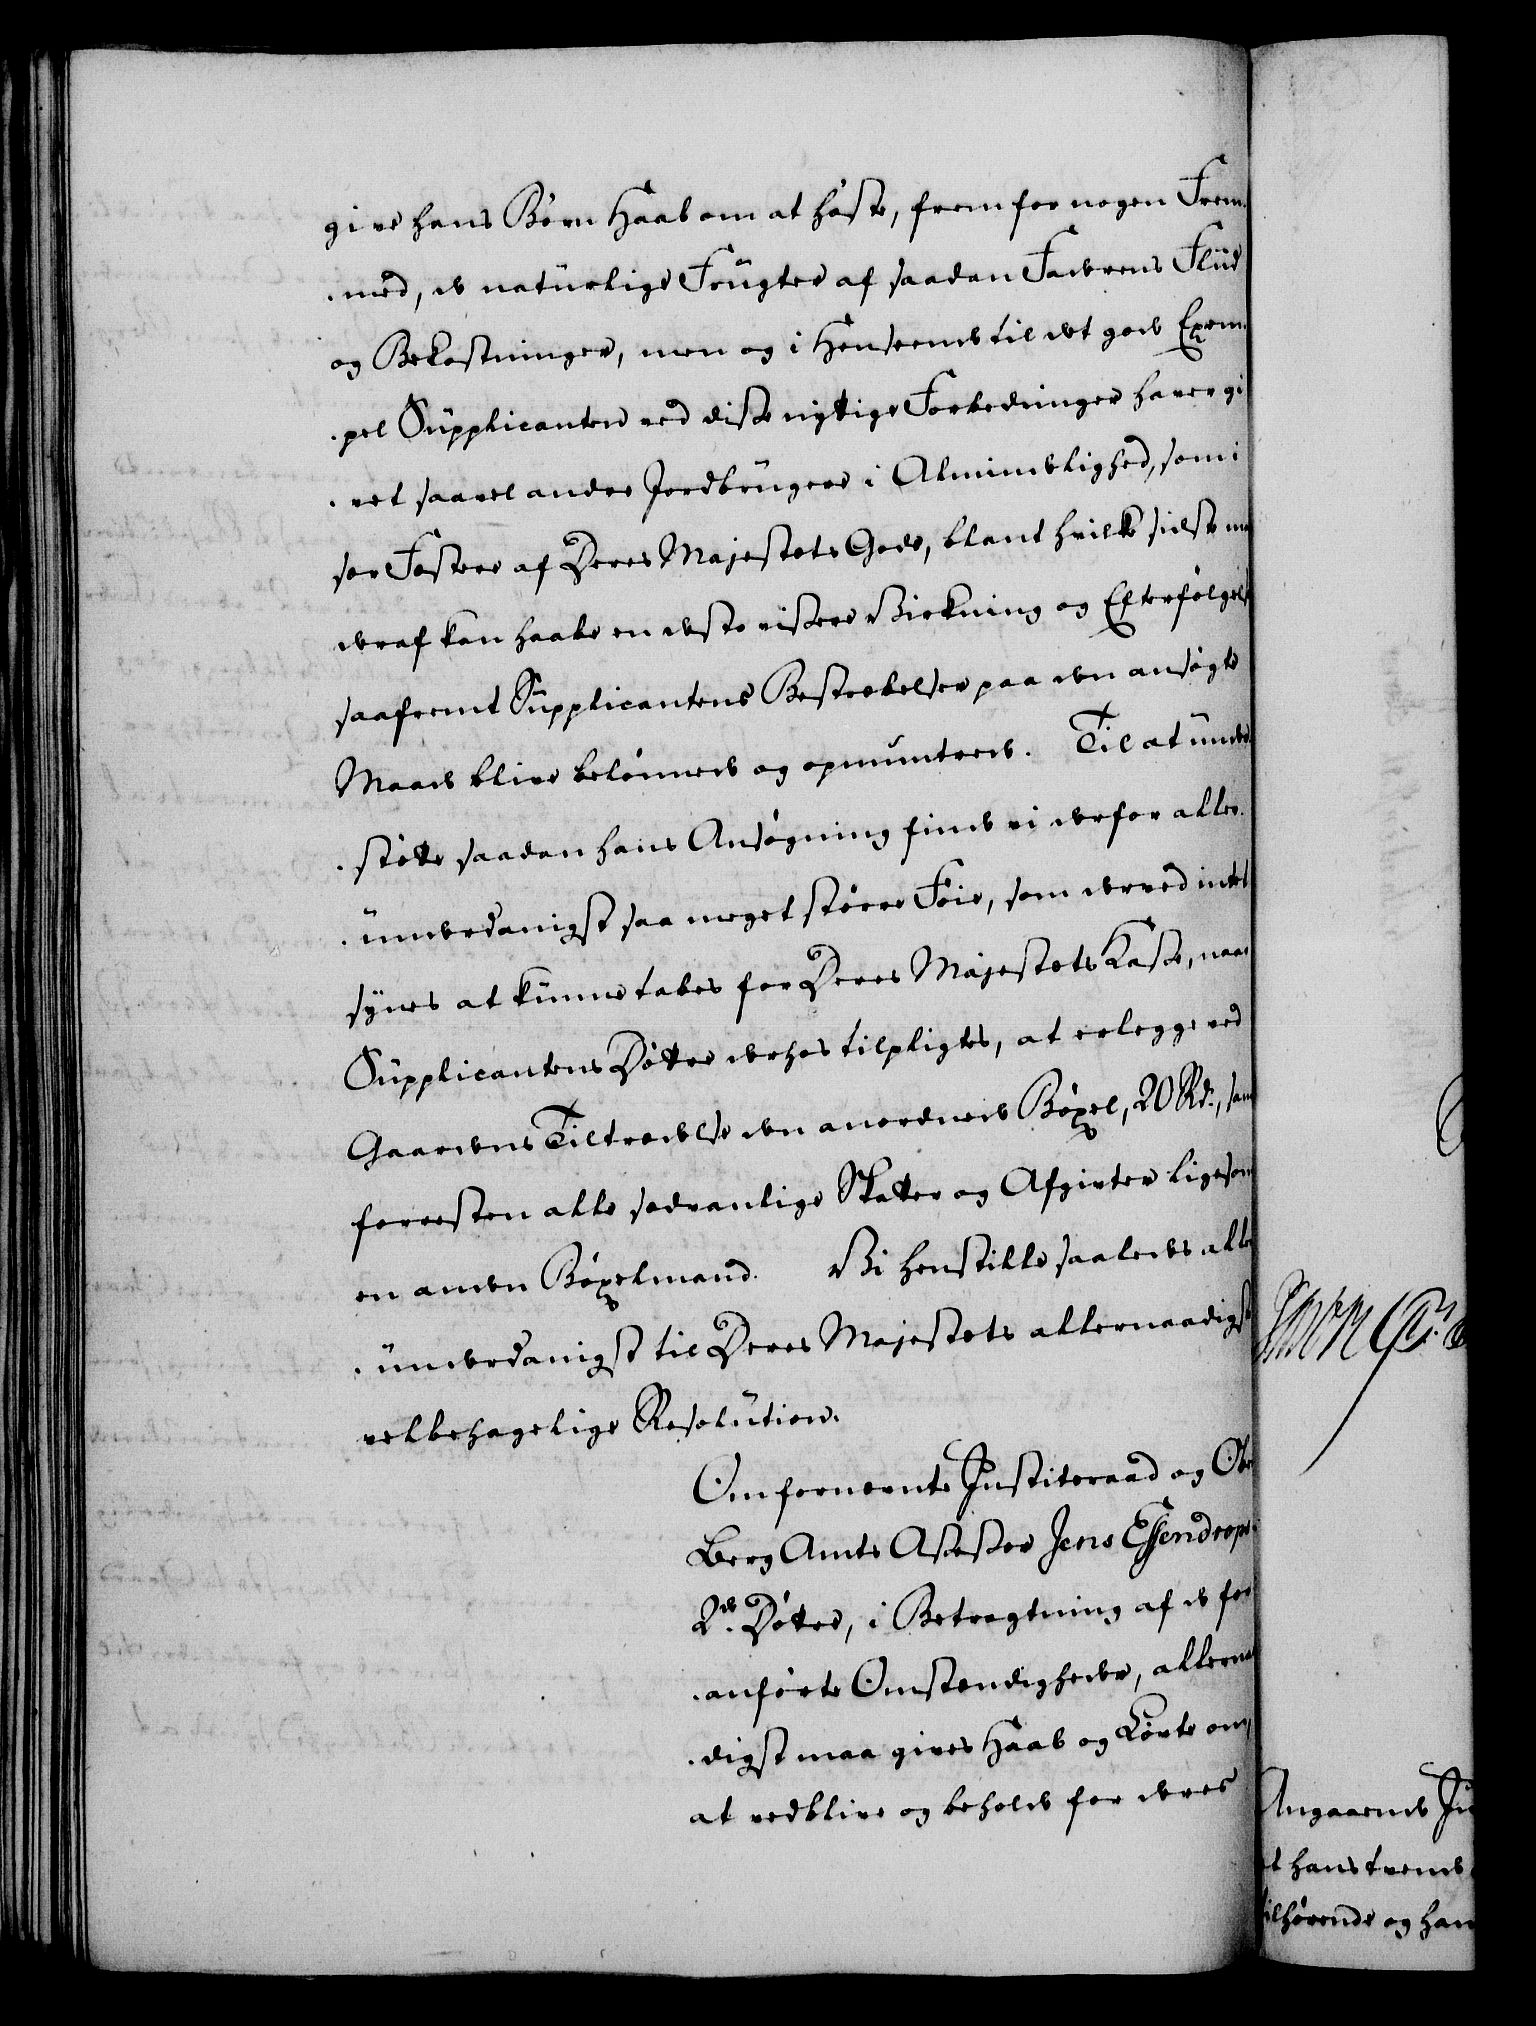 give hans Børn Haab om at høste, frem for nogen Frem-
-med, de naturlige Frugter af saadan Faderens Fliid
og Bekostninger, men og i Henseende til det gode Exem-
-pel Supplicanten ved disse nyttige Forbedringer haver gi
-vet saavel andre Jordbrugere i Almindelighed, som i
sær Fæstere af Deres Majestæts Gods, blant hvilke sidste man
deraf kan haabe en desto vissere Virkning og Efterfølgelse
saafremt Supplicantens Bestræbelser paa den ansøgte
Maade blive belønnede og opmuntrede. Til at under-
-støtte saadan hans Ansøgning finde vi derfor aller-
-underdanigst saa meget større Føie, som derved intet
synes at kunne tabes for Deres Majestæts Kasse, naar
Supplicantens Døttre derhos tilpligtes, at erlegge ved
Gaardens Tiltrædelse den anordnede Bøxel, 20 Rd., samt
forresten alle sædvanlige Skatter og Afgivter ligesom
en anden Bøxelmand. Vi henstille saaledes aller
-underdanigst til Deres Majestæts allernaadigst
velbehagelige Resolution.
Om fornevnte Justiteraad og Ober
Berg Amts Assessor Jens Essendrops
2de Døttre, i Betragtning af de for
-anførte Omstændigheder, allernaa
-digst maa gives Haab og Løvte om,
at vedblive og beholde for deres
Angaaende Ju
at hans tvende
tilhørende og han